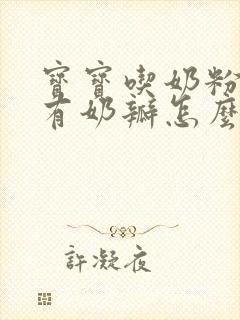 寶寶喫奶粉
有奶瓣怎麼
許凝夜